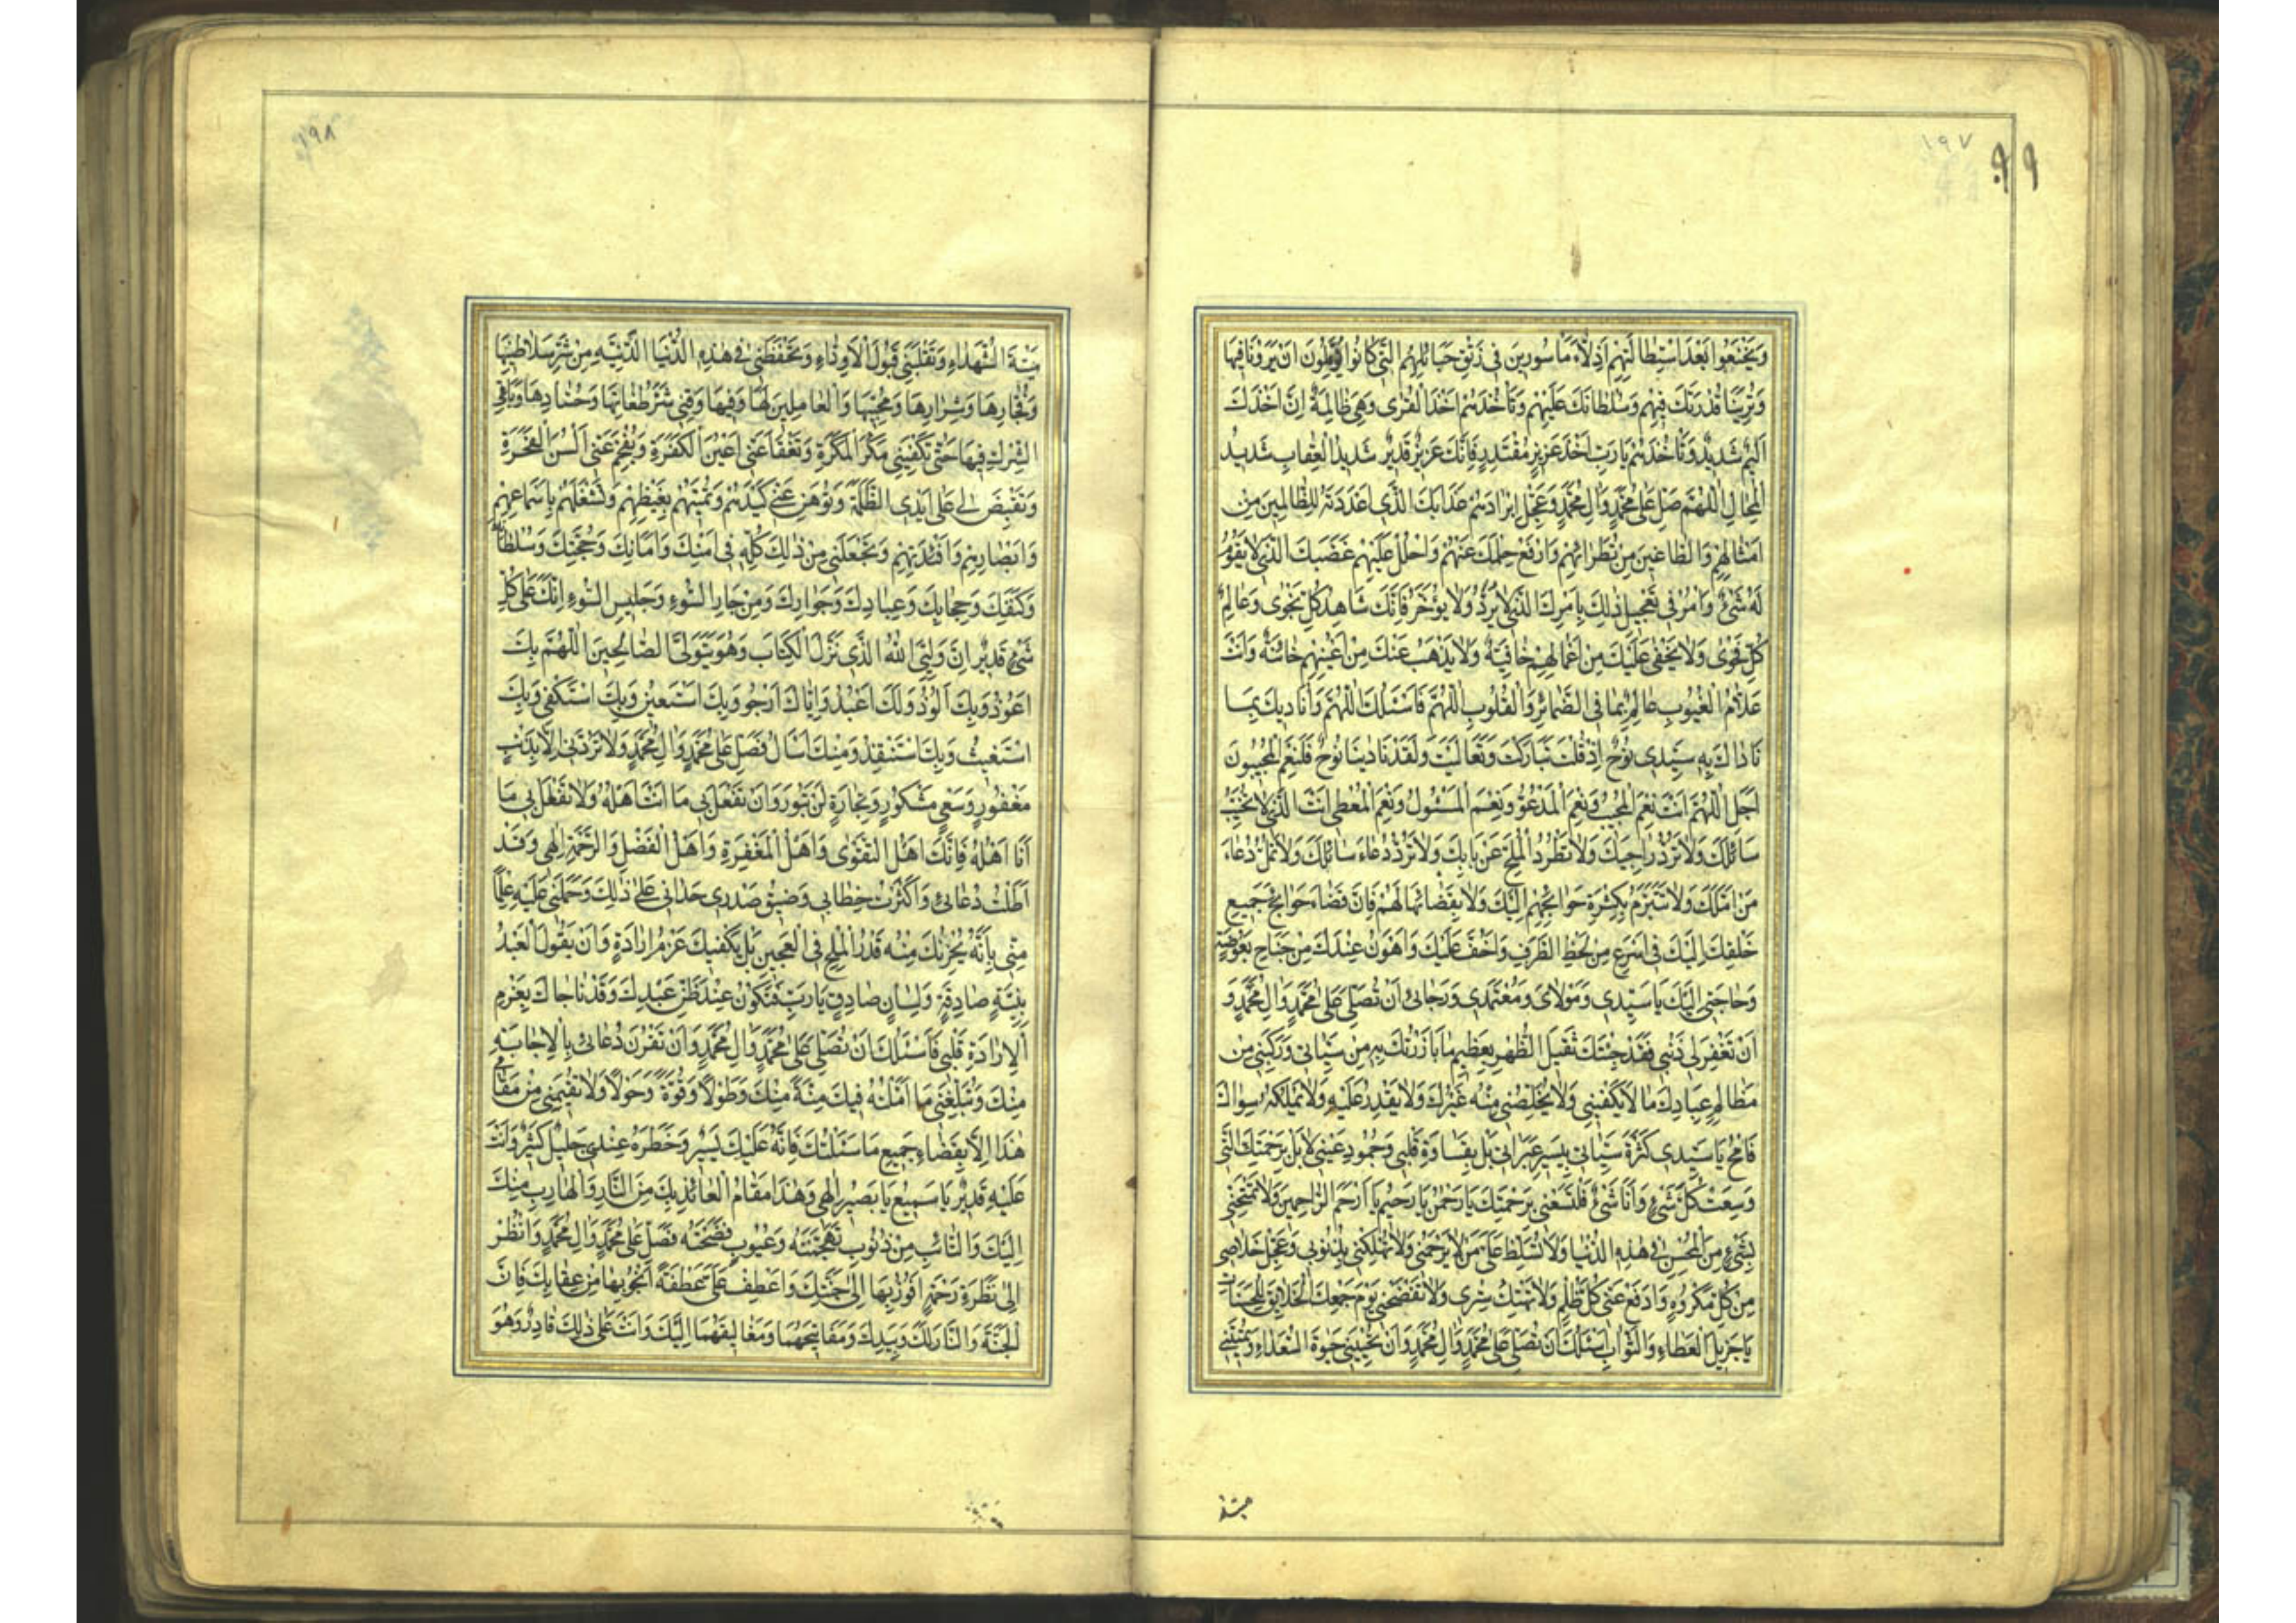 ١٩٧
٩٩
وَيَخْشَعُوا بَعْدَ اسْتِطَالَتِهِمْ اَذِلَّاءَ مَاْسُورِينَ فِي رِبَقِ حَبَائِلِهِمُ الَّتِي كَانُوا يُؤَمِّلُونَ اَنْ يَرَوْنَا فِيهَا
وَتُرِيَنَا قُدْرَتَكَ فِيهِمْ وَسُلْطَانَكَ عَلَيْهِمْ وَتَاْخُذَهُمْ اَخْذَ الْقُرٰى وَهِيَ ظَالِمَةٌ اِنَّ اَخْذَكَ
اَلِيمٌ شَدِيدٌ وَتَاْخُذَهُمْ يَا رَبِّ اَخْذَ عَزِيزٍ مُقْتَدِرٍ فَاِنَّكَ عَزِيزٌ قَدِيرٌ شَدِيدُ الْعِقَابِ شَدِيدُ
الْمِحَالِ اَللّٰهُمَّ صَلِّ عَلٰى مُحَمَّدٍ وَاٰلِ مُحَمَّدٍ وَعَجِّلْ اِيرَادَهُمْ عَذَابَكَ الَّذِي اَعْدَدْتَهُ لِلظَّالِمِينَ مِنْ
اَمْثَالِهِمْ وَالطَّاغِينَ مِنْ نُظَرَائِهِمْ وَارْفَعْ حِلْمَكَ عَنْهُمْ وَاحْلُلْ عَلَيْهِمْ غَضَبَكَ الَّذِي لَا يَقُومُ
لَهُ شَيْءٌ وَاْمُرْ فِي تَعْجِيلِ ذٰلِكَ بِاَمْرِكَ الَّذِي لَا يُرَدُّ وَلَا يُؤَخَّرُ فَاِنَّكَ شَاهِدُ كُلِّ نَجْوٰى وَعَالِمُ
كُلِّ فَحْوٰى وَلَا يَخْفٰى عَلَيْكَ مِنْ اَعْمَالِهِمْ خَافِيَةٌ وَلَا يَذْهَبُ عَنْكَ مِنْ اَعْيُنِهِمْ خَائِنَةٌ وَاَنْتَ
عَلَّامُ الْغُيُوبِ عَالِمٌ بِمَا فِي الضَّمَائِرِ وَالْقُلُوبِ اَللّٰهُمَّ فَاَسْئَلُكَ اللّٰهُمَّ وَاُنَادِيكَ بِمَا
نَادَاكَ بِهِ سَيِّدِي نُوحٌ اِذْ قُلْتَ تَبَارَكْتَ وَتَعَالَيْتَ وَلَقَدْ نَادٰينَا نُوحٌ فَلَنِعْمَ الْمُجِيبُونَ
اَجَلْ اَللّٰهُمَّ اَنْتَ نِعْمَ الْمُجِيبُ وَنِعْمَ الْمَدْعُوُّ وَنِعْمَ الْمَسْئُولُ وَنِعْمَ الْمُعْطِي اَنْتَ الَّذِي لَا تُخَيِّبُ
سَائِلَكَ وَلَا تَرُدُّ رَاجِيَكَ وَلَا تَطْرُدُ الْمُلِحَّ عَنْ بَابِكَ وَلَا تَرُدُّ دُعَاءَ سَائِلِكَ وَلَا تَمَلُّ دُعَاءَ
مَنْ اَمَّلَكَ وَلَا تَتَبَرَّمُ بِكَثْرَةِ حَوَائِجِهِمْ اِلَيْكَ وَلَا بِقَضَائِهَا لَهُمْ فَاِنَّ قَضَاءَ حَوَائِجِ جَمِيعِ
خَلْقِكَ اِلَيْكَ فِي اَسْرَعِ مِنْ لَحْظِ الطَّرْفِ وَاَخَفُّ عَلَيْكَ وَاَهْوَنُ عِنْدَكَ مِنْ جَنَاحِ بَعُوضَةٍ
وَحَاجَتِي اِلَيْكَ يَا سَيِّدِي وَمَوْلَايَ وَمُعْتَمَدِي وَرَجَائِي اَنْ تُصَلِّيَ عَلٰى مُحَمَّدٍ وَاٰلِ مُحَمَّدٍ وَ
اَنْ تَغْفِرَ لِي ذَنْبِي فَقَدْ جِئْتُكَ ثَقِيلَ الظَّهْرِ بِعَظِيمِ مَا بَارَزْتُكَ بِهِ مِنْ سَيِّئَاتِي وَرَكِبَنِي مِنْ
مَظَالِمِ عِبَادِكَ مَا لَا يَكْفِينِي وَلَا يُخَلِّصُنِي مِنْهُ غَيْرُكَ وَلَا يَقْدِرُ عَلَيْهِ وَلَا يَمْلِكُهُ سِوَاكَ
فَامْحُ يَا سَيِّدِي كَثْرَةَ سَيِّئَاتِي بِيَسِيرِ عَبَرَاتِي بَلْ بِقَسَاوَةِ قَلْبِي وَجُمُودِ عَيْنِي لَا بَلْ بِرَحْمَتِكَ الَّتِي
وَسِعَتْ كُلَّ شَيْءٍ وَاَنَا شَيْءٌ فَلْتَسَعْنِي بِرَحْمَتِكَ يَا رَحْمٰنُ يَا رَحِيمُ يَا اَرْحَمَ الرَّاحِمِينَ وَلَا تَمْتَحِنِّي
بِشَيْءٍ مِنَ الْمِحَنِ فِي هٰذِهِ الدُّنْيَا وَلَا تُسَلِّطْ عَلَيَّ مَنْ لَا يَرْحَمُنِي وَلَا تُهْلِكْنِي بِذُنُوبِي وَعَجِّلْ خَلَاصِي
مِنْ كُلِّ مَكْرُوهٍ وَادْفَعْ عَنِّي كُلَّ ظُلْمٍ وَلَا تَهْتِكْ سِتْرِي وَلَا تَفْضَحْنِي يَوْمَ جَمْعِكَ الْخَلَائِقَ لِلْحِسَابِ
يَا جَزِيلَ الْعَطَاءِ وَالثَّوَابِ اَسْئَلُكَ اَنْ تُصَلِّيَ عَلٰى مُحَمَّدٍ وَاٰلِ مُحَمَّدٍ وَاَنْ تُحْيِيَنِي حَيٰوةَ السُّعَدَاءِ وَتُمِيتَنِي
ميتة
١٩٨
مِيتَةَ الشُّهَدَاءِ وَتَقْبَلَنِي قَبُولَ الْاَوِدَّاءِ وَتَحْفَظَنِي فِي هٰذِهِ الدُّنْيَا الدَّنِيَّةِ مِنْ شَرِّ سَلَاطِينِهَا
وَفُجَّارِهَا وَشِرَارِهَا وَمُحِبِّيهَا وَالْعَامِلِينَ لَهَا وَفِيهَا وَقِنِي شَرَّ طُغَاتِهَا وَحُسَّادِهَا وَبَاغِي
الشِّرْكِ فِيهَا حَتّٰى تَكْفِيَنِي مَكْرَ الْمَكَرَةِ وَتَفْقَاَ عَنِّي اَعْيُنَ الْكَفَرَةِ وَتُفْحِمَ عَنِّي اَلْسُنَ الْفَجَرَةِ
وَتَقْبِضَ لِي عَلٰى اَيْدِي الظَّلَمَةِ وَتُوْهِنَ عَنِّي كَيْدَهُمْ وَتُمِيتَهُمْ بِغَيْظِهِمْ وَتَشْغَلَهُمْ بِاَسْمَاعِهِمْ
وَاَبْصَارِهِمْ وَاَفْئِدَتِهِمْ وَتَجْعَلَنِي مِنْ ذٰلِكَ كُلِّهِ فِي اَمْنِكَ وَاَمَانِكَ وَحُجَّتِكَ وَسُلْطَانِكَ
وَكَنَفِكَ وَحِجَابِكَ وَعِيَاذِكَ وَجِوَارِكَ وَمِنْ جَارِ السُّوءِ وَجَلِيسِ السُّوءِ اِنَّكَ عَلٰى كُلِّ
شَيْءٍ قَدِيرٌ اِنَّ وَلِيِّيَ اللّٰهُ الَّذِي نَزَّلَ الْكِتَابَ وَهُوَ يَتَوَلَّى الصَّالِحِينَ اَللّٰهُمَّ بِكَ
اَعُوذُ وَبِكَ اَلُوذُ وَلَكَ اَعْبُدُ وَاِيَّاكَ اَرْجُو وَبِكَ اَسْتَعِينُ وَبِكَ اَسْتَكْفِي وَبِكَ
اَسْتَغِيثُ وَبِكَ اَسْتَنْقِذُ وَمِنْكَ اَسْاَلُ فَصَلِّ عَلٰى مُحَمَّدٍ وَاٰلِ مُحَمَّدٍ وَلَا تَرُدَّنِي اِلَّا بِذَنْبٍ
مَغْفُورٍ وَسَعْيٍ مَشْكُورٍ وَتِجَارَةٍ لَنْ تَبُورَ وَاَنْ تَفْعَلَ بِي مَا اَنْتَ اَهْلُهُ وَلَا تَفْعَلَ بِي مَا
اَنَا اَهْلُهُ فَاِنَّكَ اَهْلُ التَّقْوٰى وَاَهْلُ الْمَغْفِرَةِ وَاَهْلُ الْفَضْلِ وَالرَّحْمَةِ اِلٰهِي وَقَدْ
اَطَلْتُ دُعَائِي وَاَكْثَرْتُ خِطَابِي وَضِيقُ صَدْرِي حَدَانِي عَلٰى ذٰلِكَ وَحَمَلَنِي عَلَيْهِ عِلْمًا
مِنِّي بِاَنَّهُ يُجْزِيكَ مِنْهُ قَدْرُ الْمِلْحِ فِي الْعَجِينِ بَلْ يَكْفِيكَ عَزْمُ اِرَادَةٍ وَاَنْ يَقُولَ الْعَبْدُ
بِنِيَّةٍ صَادِقَةٍ وَلِسَانٍ صَادِقٍ يَا رَبِّ فَتَكُونُ عِنْدَ ظَنِّ عَبْدِكَ وَقَدْ نَاجَاكَ بِعَزْمِ
الْاِرَادَةِ قَلْبِي فَاَسْئَلُكَ اَنْ تُصَلِّيَ عَلٰى مُحَمَّدٍ وَاٰلِ مُحَمَّدٍ وَاَنْ تَقْرُنَ دُعَائِي بِالْاِجَابَةِ
مِنْكَ وَتُبَلِّغَنِي مَا اَمَّلْتُهُ فِيكَ مِنَّةً مِنْكَ وَطَوْلًا وَقُوَّةً وَحَوْلًا وَلَا تُقِيمَنِي مِنْ مَقَامِي
هٰذَا اِلَّا بِقَضَاءِ جَمِيعِ مَا سَئَلْتُكَ فَاِنَّهُ عَلَيْكَ يَسِيرٌ وَخَطَرُهُ عِنْدِي جَلِيلٌ كَثِيرٌ وَاَنْتَ
عَلَيْهِ قَدِيرٌ يَا سَمِيعُ يَا بَصِيرُ اِلٰهِي وَهٰذَا مَقَامُ الْعَائِذِ بِكَ مِنَ النَّارِ وَالْهَارِبِ مِنْكَ
اِلَيْكَ وَالتَّائِبِ مِنْ ذُنُوبٍ تَهَجَّمَتْهُ وَعُيُوبٍ فَضَحَتْهُ فَصَلِّ عَلٰى مُحَمَّدٍ وَاٰلِ مُحَمَّدٍ وَانْظُرْ
اِلَيَّ نَظْرَةَ رَحْمَةٍ اَفُوزُ بِهَا اِلٰى جَنَّتِكَ وَاعْطِفْ عَلَيَّ عَطْفَةً اَنْجُو بِهَا مِنْ عِقَابِكَ فَاِنَّ
الْجَنَّةَ وَالنَّارَ لَكَ وَبِيَدِكَ وَمَفَاتِيحَهُمَا وَمَغَالِيقَهُمَا اِلَيْكَ وَاَنْتَ عَلٰى ذٰلِكَ قَادِرٌ وَهُوَ